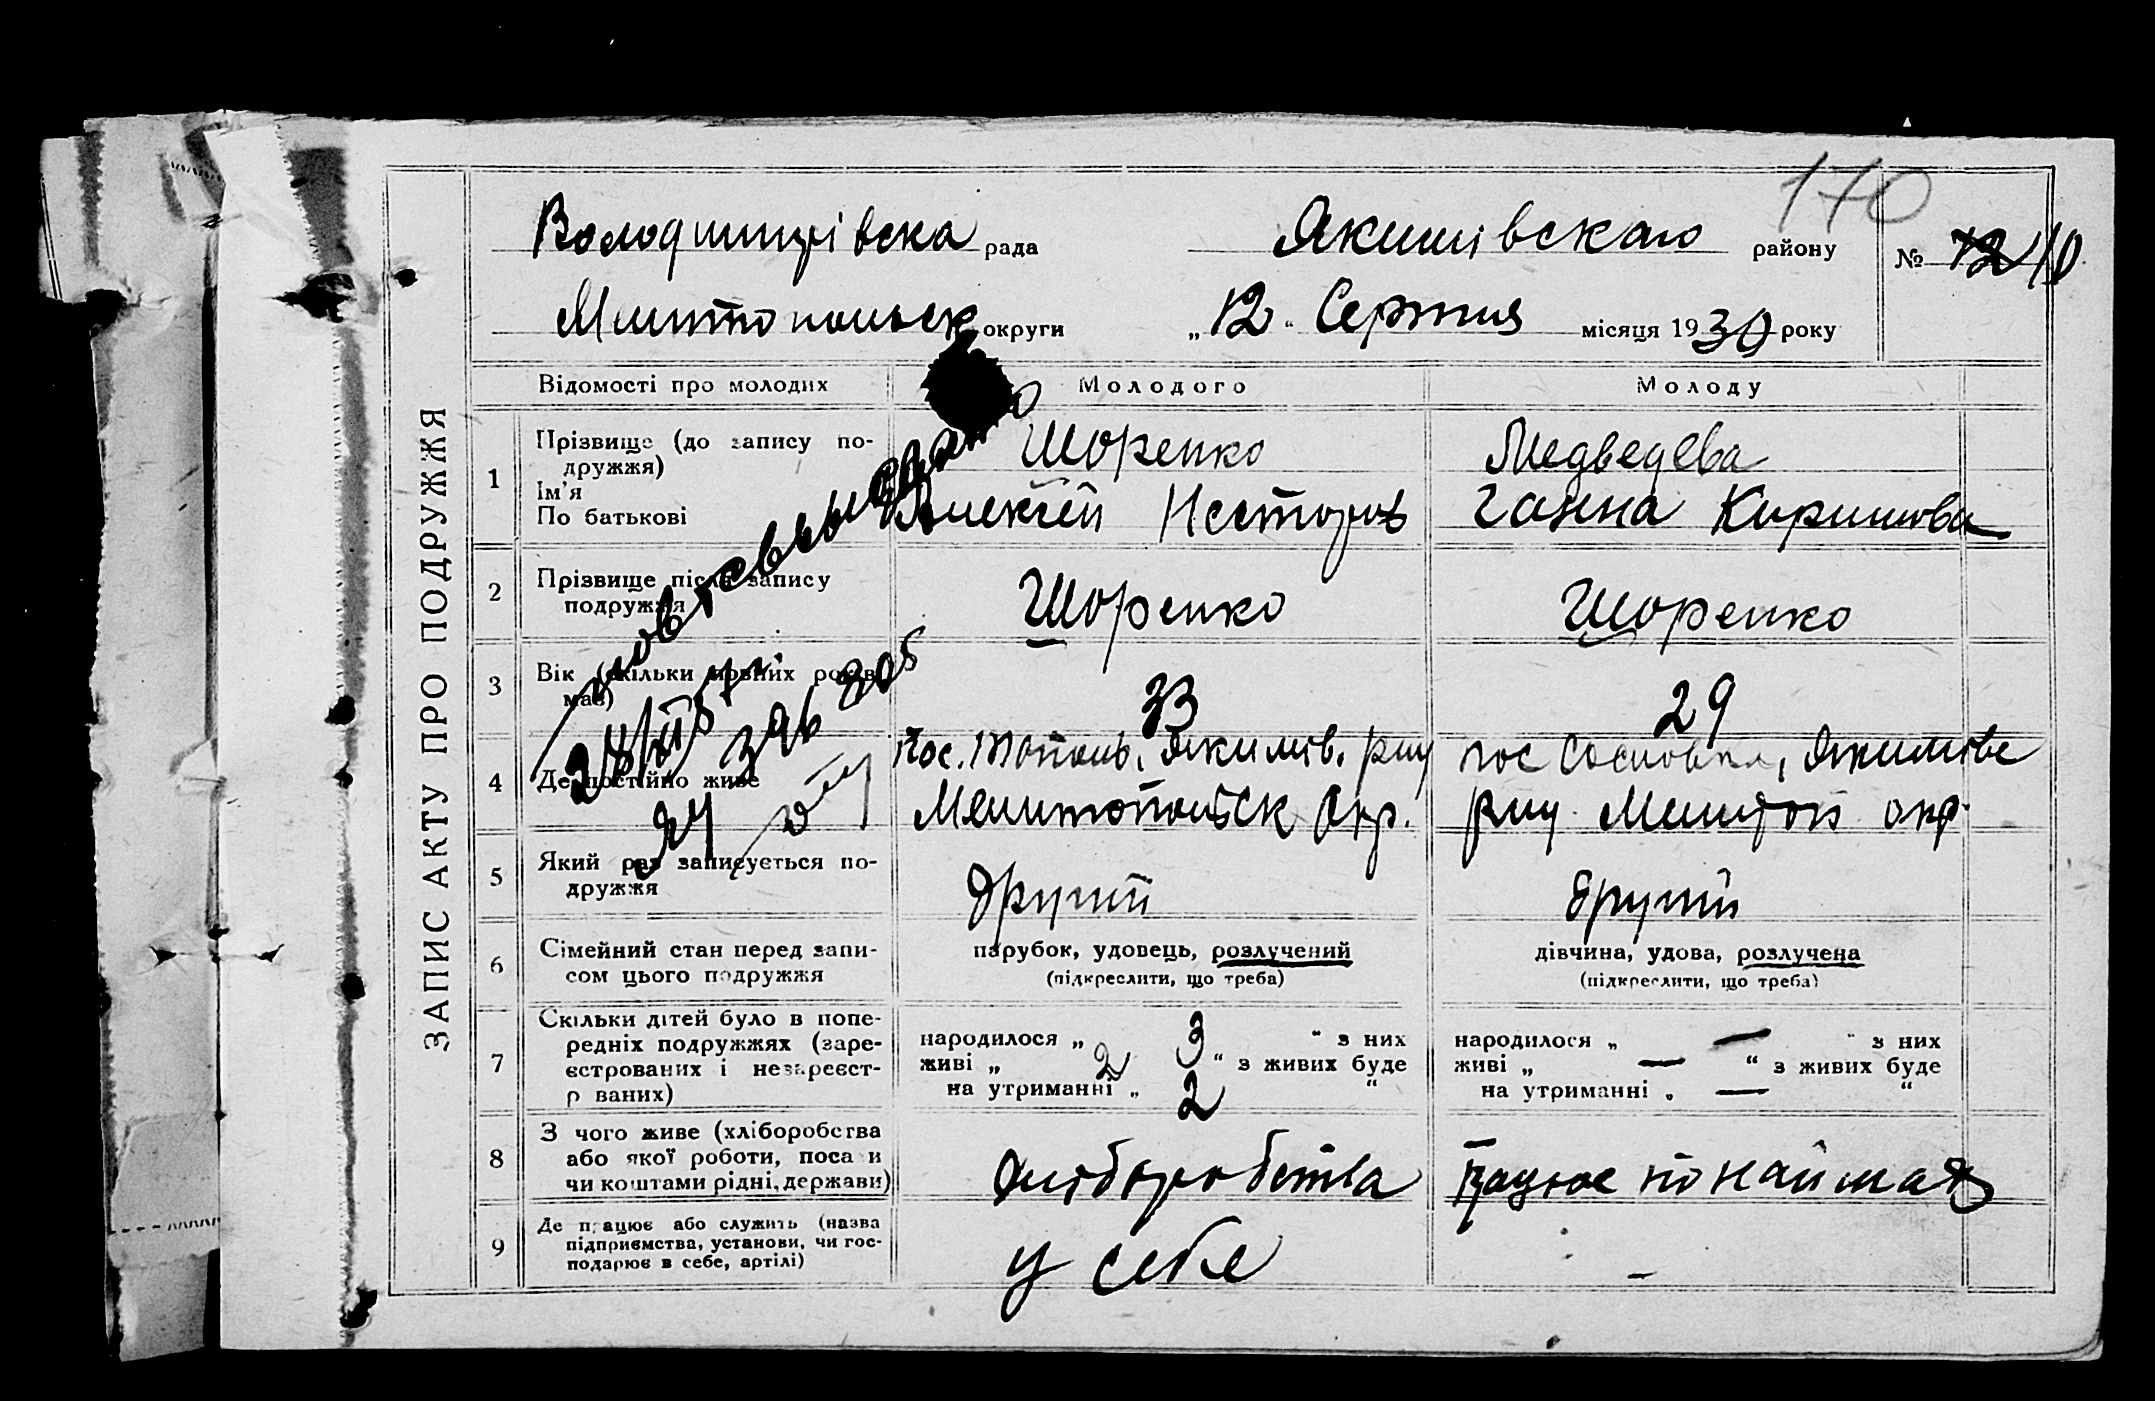 170
Володимирівска рада Якимівскаго району № 12 10
Мелитопольск округи „12“ Серпня місяця 1930 року
ЗАПИС АКТУ ПРО ПОДРУЖЖЯ
Відомості про молодих Молодого Молоду
1 Прізвище (до запису подружжя) Шоренко Медведева
Ім’я
По батькові Алексій Несторов Ганна Киримова
2 Прізвище після запису подружжя Шоренко Шоренко
3 Вік (скільки повних років має) 33 29
4 Де постійно живе пос. Якимів. рну пос Сосновка, Якимівс
Мелитопольск Окр. рну Мелитоп окр.
5 Який раз записується подружжя другий другий
6 Сімейний стан перед записом цього подружжя парубок, удовець, розлучений дівчина, удова, розлучена
(підкреслити, що треба) (підкреслити, що треба)
7 Скільки дітей було в попередніх подружжях (зареєстрованих і незареєстрваних) народилося „ 3 “ з них народилося „ — “ з них
живі „ 2 “ з живих буде живі „ — “ з живих буде
на утриманні „ 2 “ на утриманні „ — “
8 З чого живе (хліборобства або якої роботи, посади чи коштами рідні, держави) хліборобства працює по наймах
9 Де працює або служить (назва підприємства, установи, чи господарює в себе, артілі) у себе —
повт свид выдано